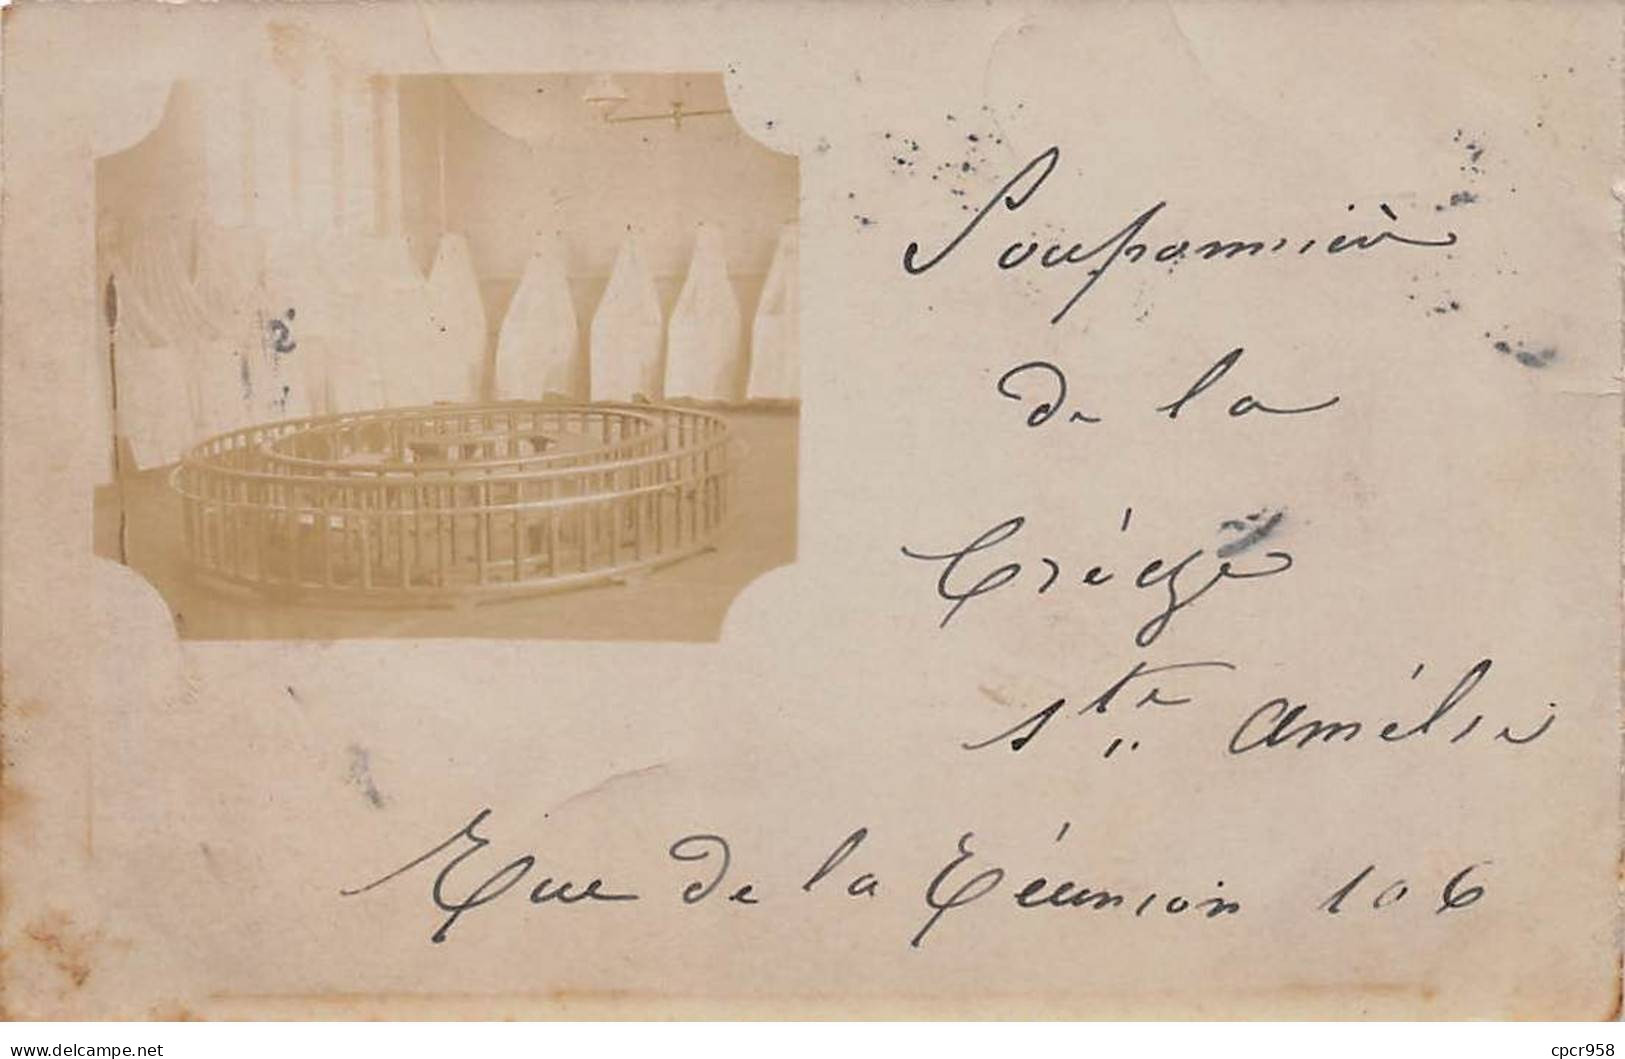 Pouponnière
de la
Crèche
Ste Amélie
Rue de la Réunion 106
www.delcampe.net
cpcr958